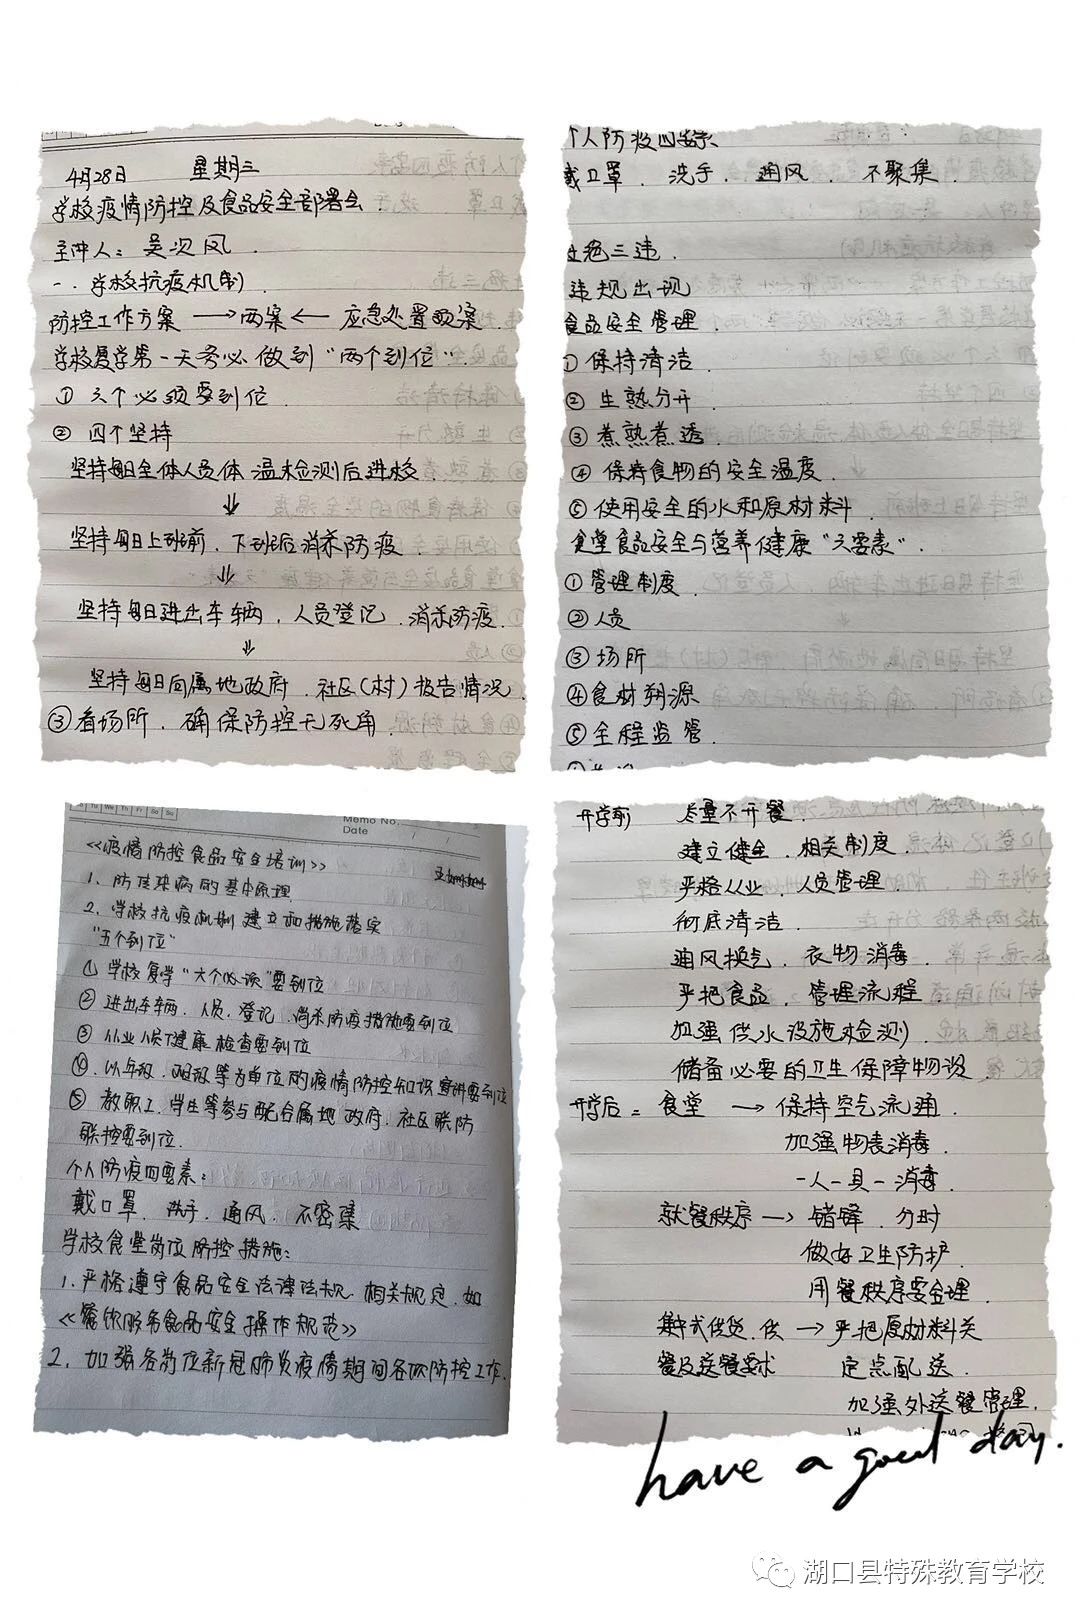 4月28日 星期三
学校疫情防控及食品安全部署会
主持人：吴次风
一、学校抗疫机制
防控工作方案 → 两案 ← 应急处置预案
学校复学第一天务必做到"两个到位"
① 六个必须要到位
② 四个坚持
坚持每日全体人员体温检测后进校
⇓
坚持每日上班前、下班后消杀防疫
⇓
坚持每日进出车辆、人员登记、消杀防疫
⇓
坚持每日向属地政府、社区(村)报告情况
③ 看场所，确保防控无死角
个人防疫四要素
戴卫罩、洗手、通风、不聚集
杜绝三违
违规出现
食品安全管理
① 保持清洁
② 生熟分开
③ 煮熟煮透
④ 保持食物的安全温度
⑤ 使用安全的水和原材料
食堂食品安全与营养健康"六要素"
① 管理制度
② 人员
③ 场所
④ 食材朔源
⑤ 全程监管
Memo No.
Date
《疫情防控食品安全培训》
1、防传染病的基本原理
2、学校抗疫机制建立和措施落实
"五个到位"
① 学校复学"六个必须"要到位
② 进出车辆、人员、登记、消杀防疫措施要到位
③ 从业人员健康检查要到位
④ 以年级、班级等为单位的疫情防控知识宣讲要到位
⑤ 教职工、学生等参与配合属地政府、社区联防
联控要到位
个人防疫四要素：
戴口罩、洗手、通风、不密集
学校食堂岗位防控措施：
1、严格遵守食品安全法律法规、相关规定、如
《餐饮服务食品安全操作规范》
2、加强各岗位新冠肺炎疫情期间各项防控工作
开学前 尽量不开餐
建立健全、相关制度
严格从业、人员管理
彻底清洁
通风换气、衣物消毒
严把食品、管理流程
加强供水设施检测
储备必要的卫生保障物资
开学后： 食堂 → 保持空气流通
加强物表消毒
一人一具一消毒
就餐秩序 → 错锋、分时
做好卫生防护
用餐秩序要合理
集中式供货、供 → 严把原材料关
餐及送餐要求 定点配送
加强外送餐管理
have a good day.
湖口县特殊教育学校